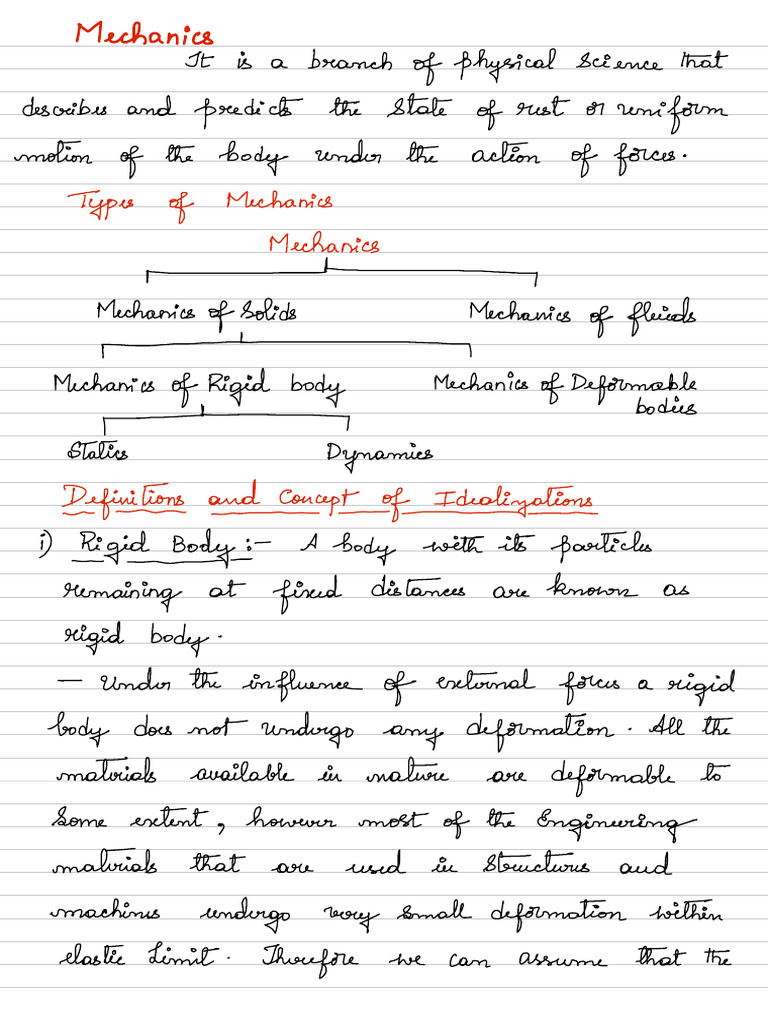 Mechanics
It is a branch of physical science that
describes and predicts the state of rest or uniform
motion of the body under the action of forces.
Types of Mechanics
Mechanics
Mechanics of Solids Mechanics of fluids
Mechanics of Rigid body Mechanics of Deformable
bodies
Statics Dynamics
Definitions and Concept of Idealizations
i) Rigid Body :- A body with its particles
remaining at fixed distances are known as
rigid body.
— Under the influence of external forces a rigid
body does not undergo any deformation. All the
materials available in nature are deformable to
some extent, however most of the Engineering
materials that are used in structures and
machines undergo very small deformation within
elastic limit. Therefore we can assume that the